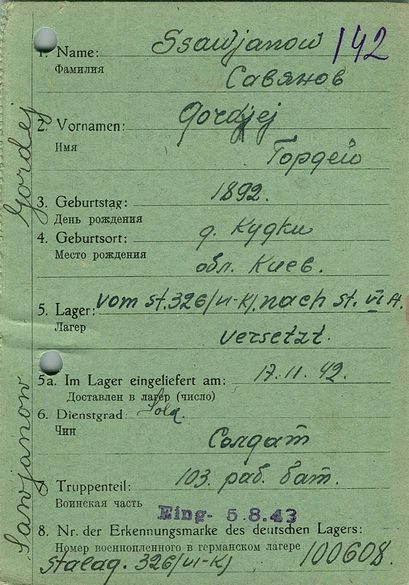 142
1. Name: Ssawjanow
Фамилия Савянов
2. Vornamen: Gordjej
Имя Гордей
3. Geburtstag: 1892.
День рождения
4. Geburtsort: д. Кудки
Место рождения обл. Киев.
5. Lager: vom St. 326/VI-K), nach St. VI A.
Лагер versetzt.
5a. Im Lager eingeliefert am: 17.11.42.
Доставлен в лагер (число)
6. Dienstgrad: Sold.
Чин Солдат
7. Truppenteil: 103. раб. бат.
Воинская часть
Eing- 5.8.43
8. Nr. der Erkennungsmarke des deutschen Lagers:
Номер военнопленного в германском лагере 100608.
Stalag. 326/VI-K)
Sawjanow Gordej